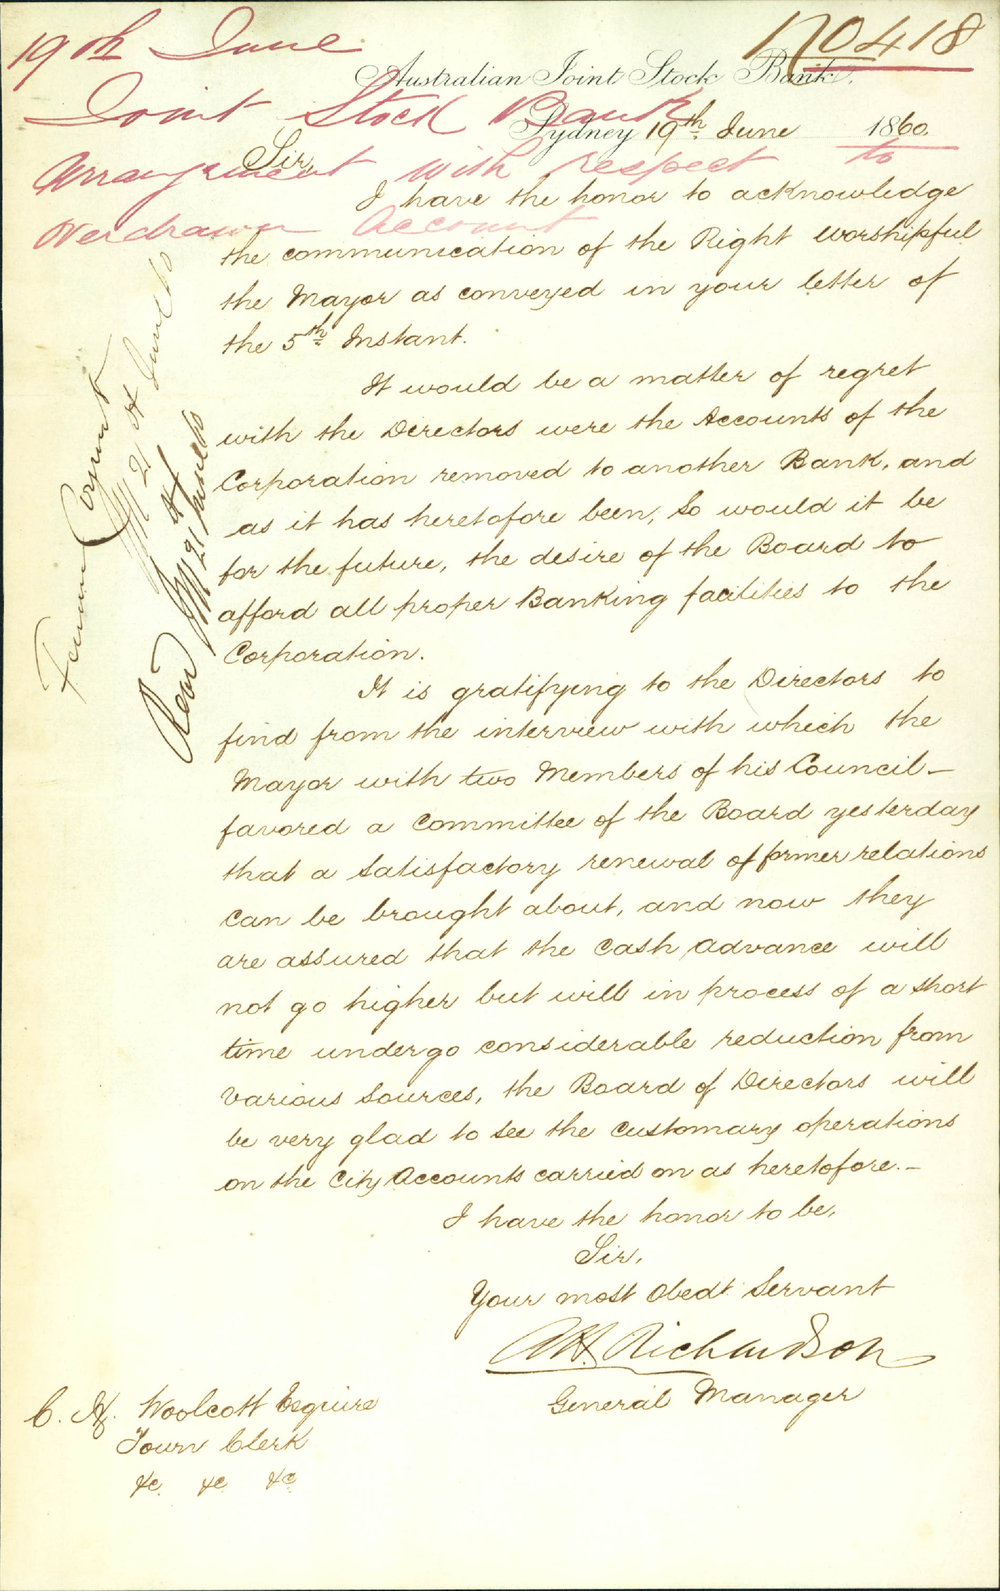 19th June
No 418
Joint Stock Bank
Arrangement with respect to
Overdrawn Account
Australian Joint Stock Bank.
Sydney 19th June 1860.
Sir,
I have the honor to acknowledge
the communication of the Right Worshipful
the Mayor as conveyed in your letter of
the 5th Instant.
It would be a matter of regret
with the Directors were the Accounts of the
Corporation removed to another Bank, and
as it has heretofore been, so would it be
for the future, the desire of the Board to
afford all proper Banking facilities to the
Corporation.
It is gratifying to the Directors to
find from the interview with which the
Mayor with two Members of his Council
favored a Committee of the Board yesterday
that a satisfactory renewal of former relations
can be brought about, and now they
are assured that the cash advance will
not go higher but will in process of a short
time undergo considerable reduction from
various sources, the Board of Directors will
be very glad to see the customary operations
on the City Accounts carried on as heretofore.—
I have the honor to be,
Sir,
Your most Obedt Servant
AH. Richardson
General Manager
C. H. Woolcott Esquire
Town Clerk
&c &c &c
Finance Comt
21st June 60
Read
21 June 60